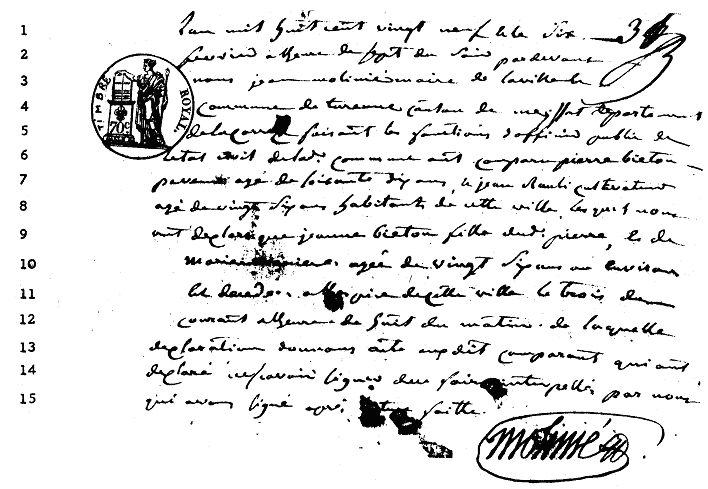 1 L'an mil huit cent vingt neuf et le six
2 fevrier a lheure de sept du soir pardevant
3 nous jean molinié maire de la ville de
TIMBRE ROYAL 70c
4 commune de turenne canton de meyssat departement
5 de la correze faisant les fonctions d'officier public de
6 letat civil de lad. commune ont comparu pierre bieton
7 agé de soisante dix ans, et jean cultivateur
8 agé de vingt six ans habitants de cette ville, lesquels nous
9 ont declaré que jeanne bieton fille dud. pierre, et de
10 marie agée de vingt six ans ou environ
11 est decedée a de cette ville le trois du
12 courant a lheure de huit du matin. de laquelle
13 declaration donnons acte audit comparant qui ont
14 declaré ne savoir signer de ce faire interpellés par nous
15 qui avons signé après faitte
molinié